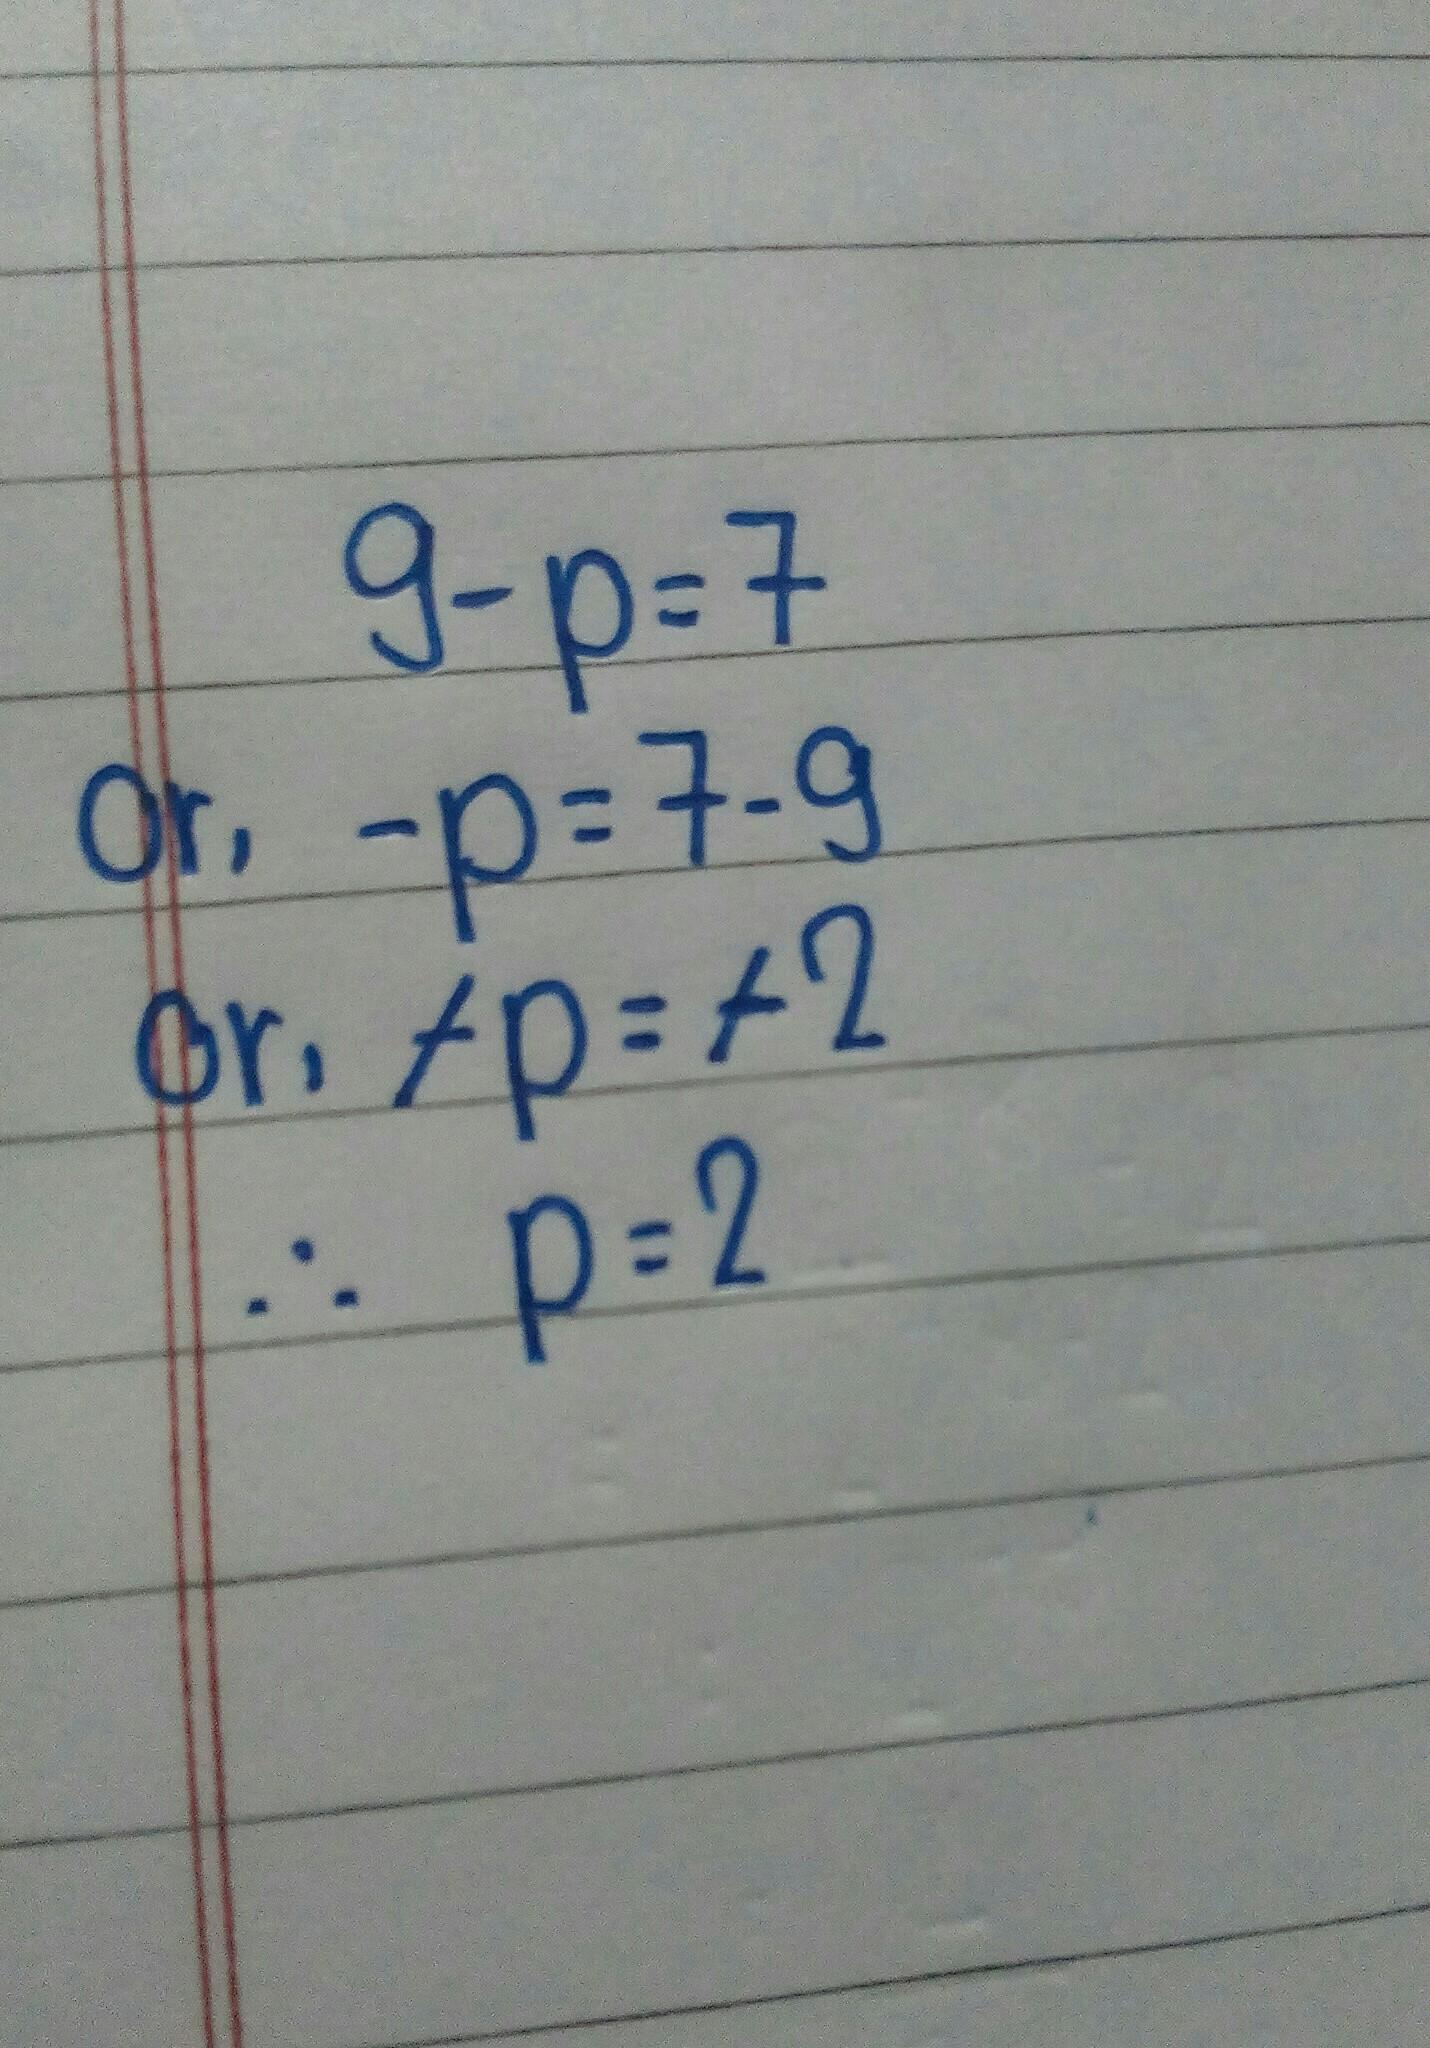 9-p=7
Or, -p=7-9
Or, -p=-2
∴ p=2